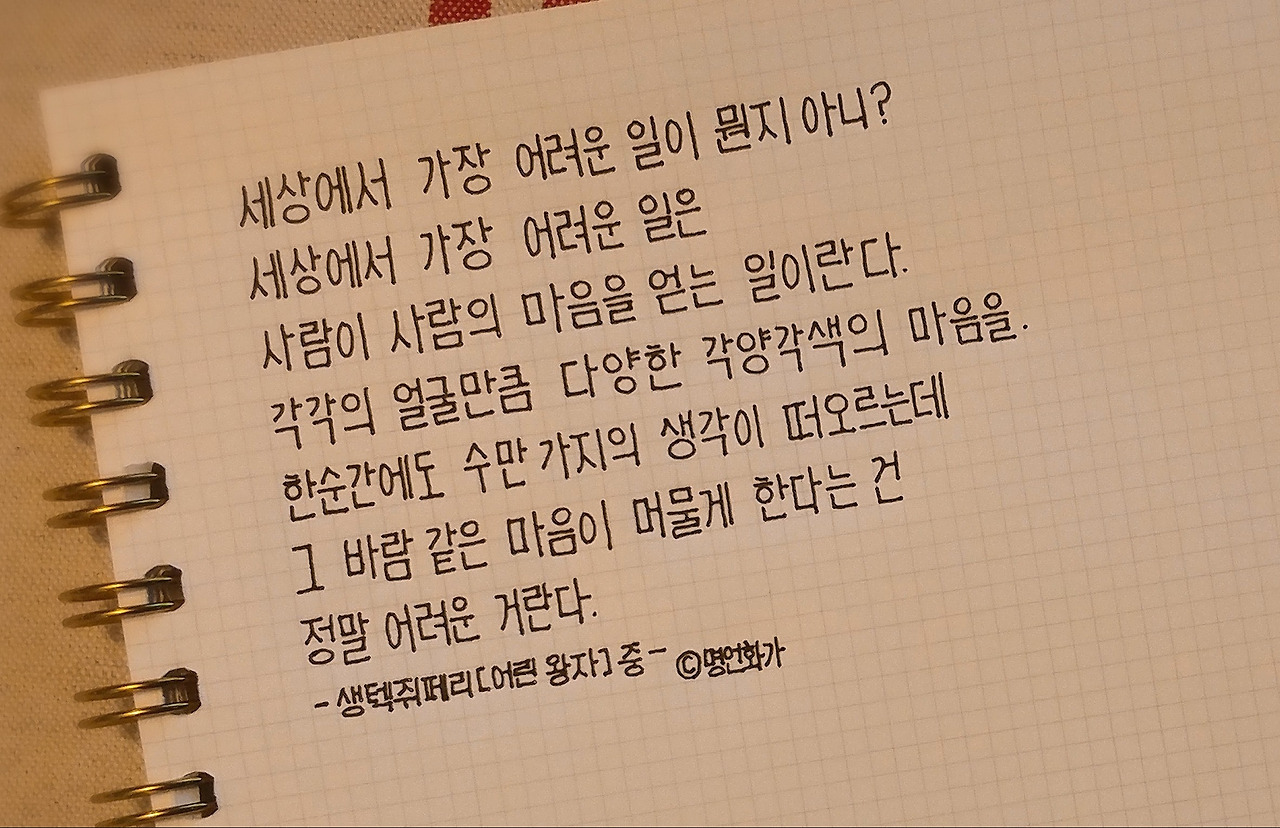 세상에서 가장 어려운 일이 뭔지 아니?
세상에서 가장 어려운 일은
사람이 사람의 마음을 얻는 일이란다.
각각의 얼굴만큼 다양한 각양각색의 마음을.
한순간에도 수만 가지의 생각이 떠오르는데
그 바람 같은 마음이 머물게 한다는 건
정말 어려운 거란다.
- 생텍쥐페리[어린 왕자] 중 - ©명언화가